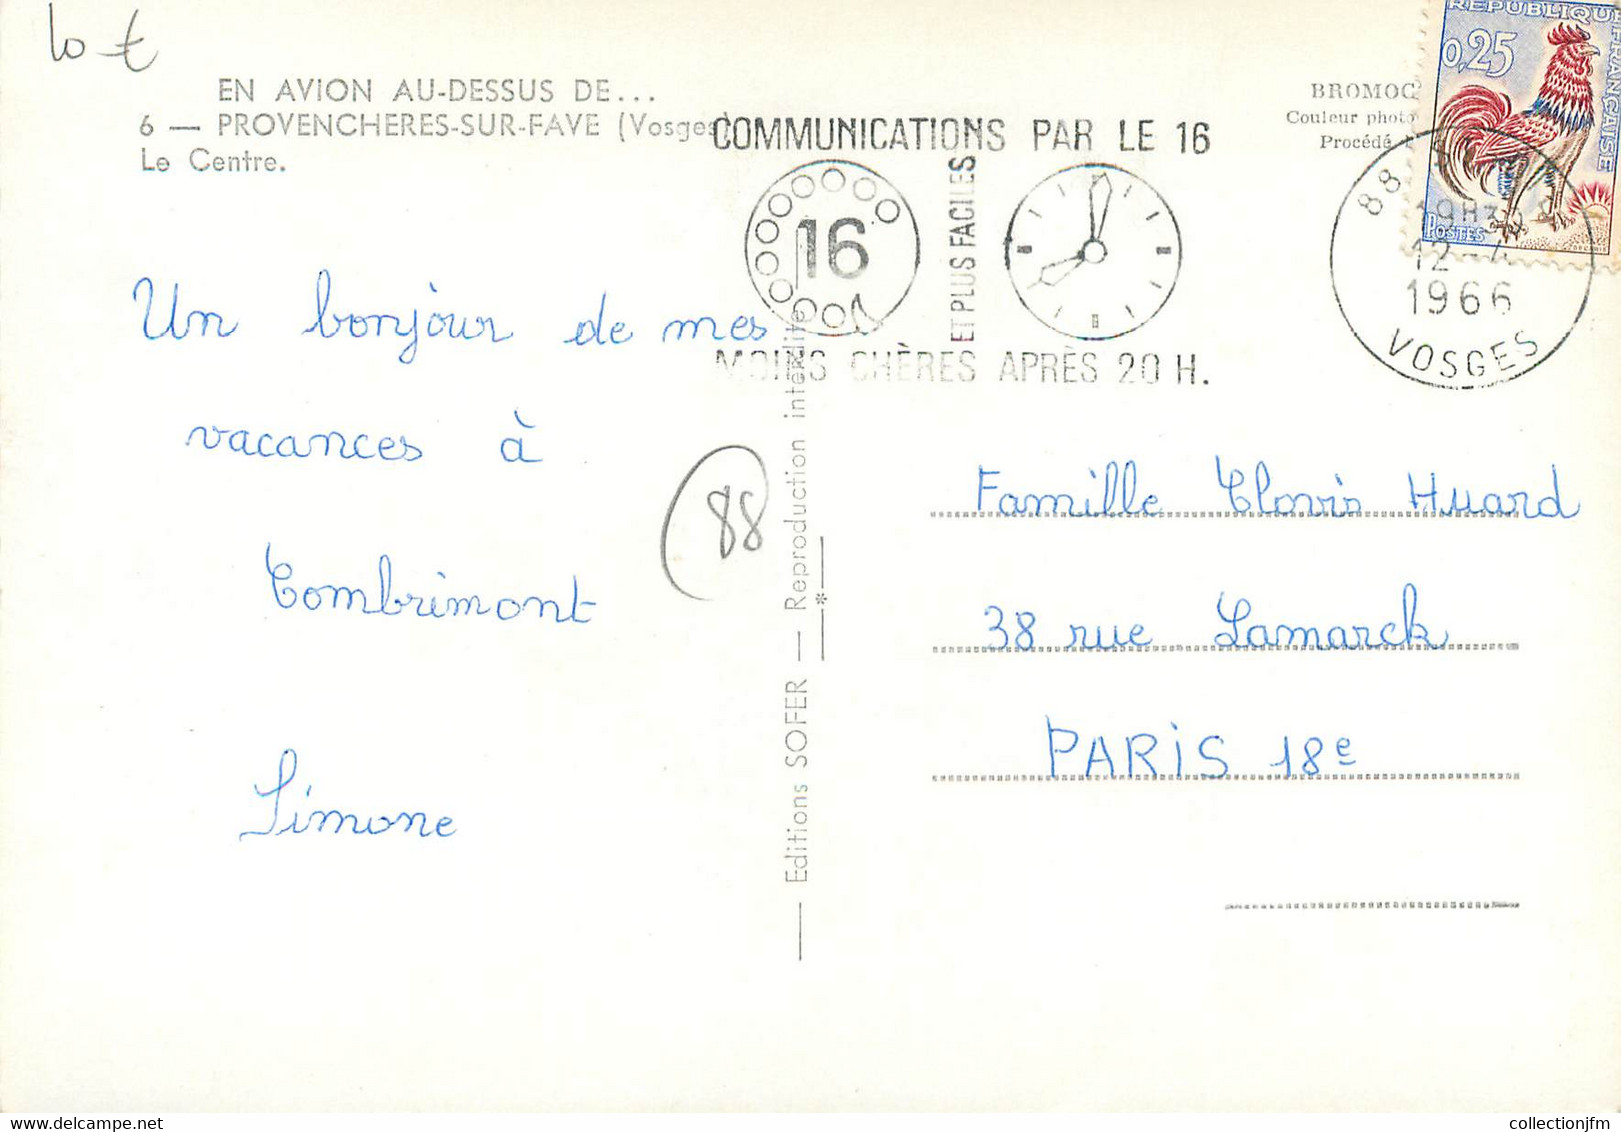 10 €
EN AVION AU-DESSUS DE...
6 — PROVENCHERES-SUR-FAVE (Vosges)
Le Centre.
COMMUNICATIONS PAR LE 16
16
ET PLUS FACILES
MOINS CHÈRES APRÈS 20 H.
BROMOC
Couleur photo
Procédé
REPUBLIQUE FRANÇAISE
0,25
POSTES
88
12 - 4
1966
VOSGES
Un bonjour de mes
vacances à
Combrimont
Simone
88
— Editions SOFER — Reproduction interdite
—*—
Famille Clovis Huard
38 rue Lamarck
PARIS 18e
collectionjfm